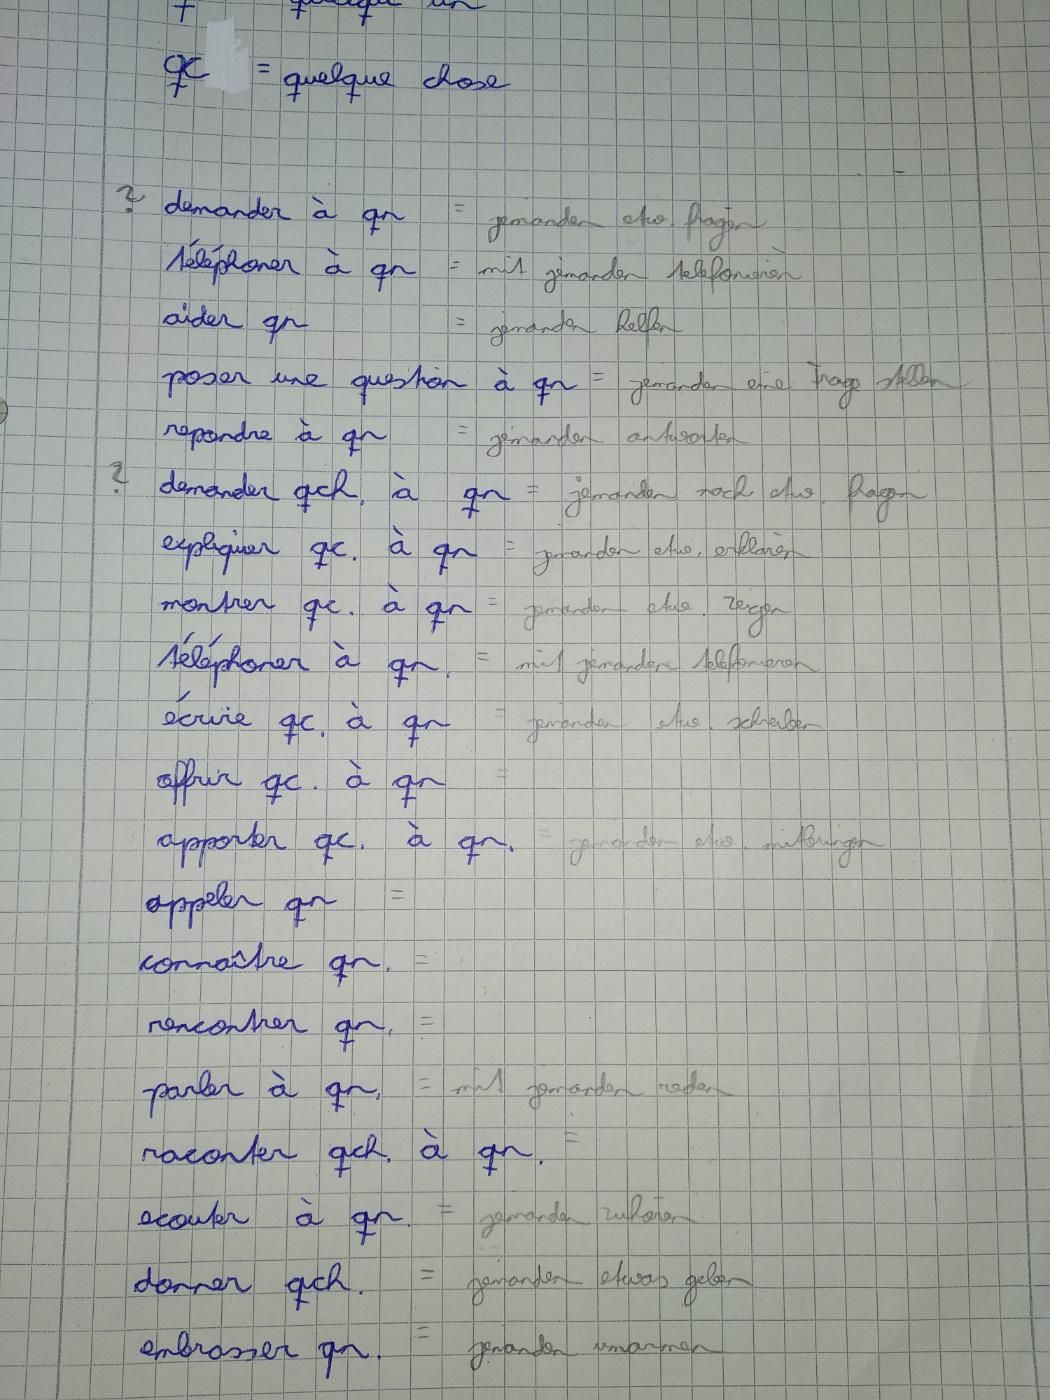 quelqu'un
qc = quelque chose
? demander à qn = jemanden etw. fragen
téléphoner à qn = mit jemanden telefonieren
aider qn = jemanden helfen
poser une question à qn = jemanden eine Frage stellen
repondre à qn = jemanden antworten
? demander qch. à qn = jemanden nach etw. fragen
expliquer qc. à qn = jemanden etw. erklären
montrer qc. à qn = jemanden etw. zeigen
téléphoner à qn. = mit jemanden telefonieren
écrire qc. à qn = jemanden etw. schreiben
offrir qc. à qn =
apporter qc. à qn. = jemanden etw. mitbringen
appeler qn =
connaître qn. =
rencontrer qn. =
parler à qn. = mit jemanden reden
raconter qch. à qn. =
ecouter à qn. = jemanden zuhören
donner qch. = jemanden etwas geben
embrasser qn. = jemanden umarmen